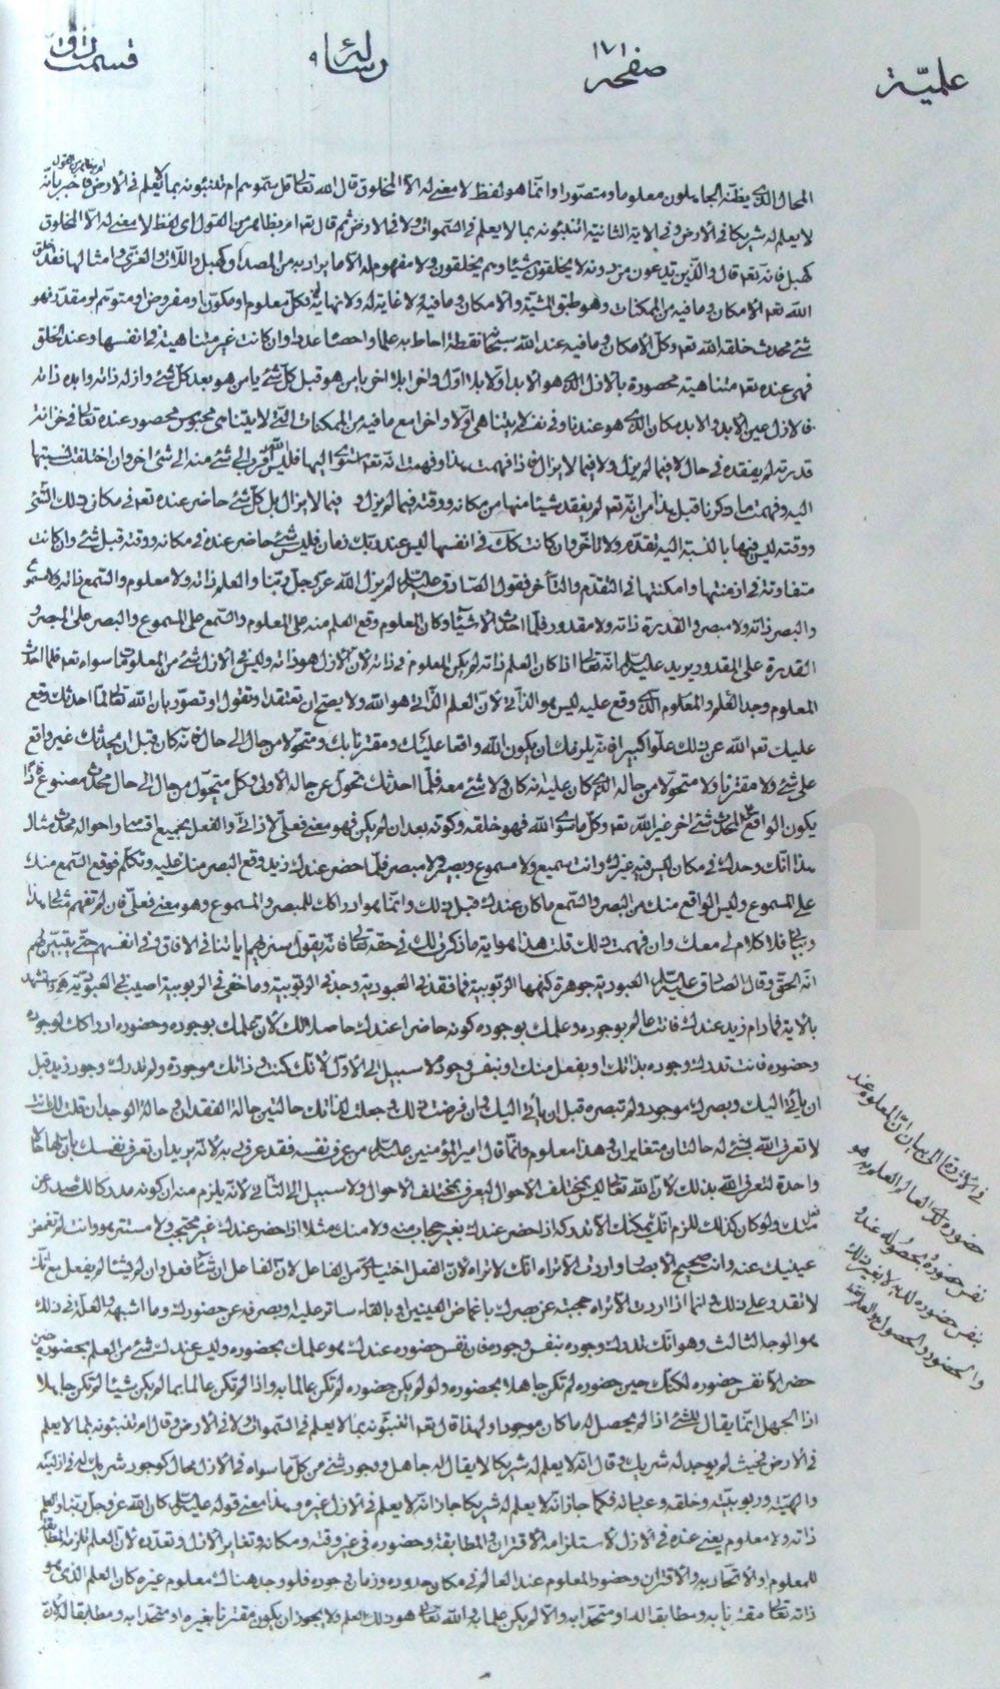 علميّة صفحه ١٧١ رسالة ٩ قسمت
المحال الذي يظنّه الجاهلون معلوما ومتصوّرا وانّما هو لفظ لا معنى له الّا المخلوق قال الله تعالى قل سمّوهم ام تنبّئونه بما لا يعلم في الارض فاخبر بانّه
ام بظاهر من القول
لا يعلم له شريكا في الارض وفي الاية الثانية اتنبّئونه بما لا يعلم في السّموات ولا في الارض ثم قال تعالى ام بظاهر من القول اي لفظ لا معنى له الّا المخلوق
كهبل فانه تعالى قال والّذين تدعون من دونه لا يخلقون شيئا وهم يخلقون ولا مفهوم له الّا ما يراد به من المصداق كهبل واللّات والعزّى وامثالها فقد خلق
الله تعالى الامكان وما فيه من الممكنات وهو طبق المشيّة والامكان وما فيه لا غاية له ولا نهاية فكلّ معلوم او مكوّن او مفروض او متوهّم او مقدّر فهو
شيء محدث خلقه الله تعالى وكلّ الامكان وما فيه عند الله سبحانه نقطة احاط به علما واحصاه عددا وان كانت غير متناهية في انفسها وعند الخلق
فهي عنده تعالى متناهية محصورة بالازل الذي هو الابد اوّلا بلا اوّل واخرا بلا اخر يا من هو قبل كلّ شيء يا من هو بعد كلّ شيء وازله ذاته وابده ذاته
فالازل عين الابد والابد مكان الذي هو عندنا وفي نفسه لا يتناهى اوّلا واخرا مع ما فيه من الممكنات التي لا يتناهى محبوس محصور عنده تعالى في خزانة
قدرته لم يفقده في حال لا فيما لم يزل ولا فيما لا يزال فاذا فهمت هذا وفهمت انّه تعالى استوى اليها فليس شيء اقرب الى شيء منه الى شيء اخر وان اختلفت نسبتها
اليه وفهمت ما ذكرنا قبل هذا من انّه تعالى لم يفقد شيئا منها من مكانه ووقته فيما لم يزل و فيما لا يزال بل كلّ شيء حاضر عنده تعالى في مكان ذلك الشّيء
ووقته ليس فيها بالنسبة اليه تقدّم ولا تاخّر وان كانت كذلك في انفسها ليس عند ربّك زمان فليس شيء حاضر عنده في مكانه ووقته قبل شيء وان كانت
متفاوتة في ازمنتها وامكنتها في التقدّم والتأخّر فقول الصّادق عليه السلام لم يزل الله عزّ وجلّ ربّنا والعلم ذاته ولا معلوم والسّمع ذاته ولا مسموع
والبصر ذاته ولا مبصر والقدرة ذاته ولا مقدور فلمّا احدث الاشياء وكان المعلوم وقع العلم منه على المعلوم والسّمع على المسموع والبصر على المبصر و
القدرة على المقدور يريد عليه السلام انّه تعالى اذا كان العلم ذاته لم يكن المعلوم في ذاته لان الازل هو ذاته وليس في الازل شيء من المعلومات سواه تعالى فلمّا احدث
المعلوم وجد العلم والمعلوم الذي وقع عليه ليس هو الذاتي لانّ العلم الذّاتي هو الله ولا يصحّ ان تعتقد او تقول او تصوّر بان الله تعالى لمّا احدثك وقع
عليك تعالى الله عن ذلك علوّا كبيرا فانه يلزمك ان يكون الله واقعا عليك ومقترنا بك ومتحوّلا من حال الى حال فانه كان قبل ان يحدثك غير واقع
على شيء ولا مقترنا ولا متحوّلا من حاله الذي كان عليه انه كان ولا شيء معه فلمّا احدثك تحوّل عن حاله الاولى وكل متحوّل من حال الى حال محدث مصنوع فاذا
يكون الواقع على المحدث شيء اخر غير الله تعالى وكلّ ما سوى الله فهو خلقه وكونه بعد ان لم يكن فهو معنى فعليّ لا ذاتي والفعل بجميع اقسامه واحواله محدث مثال
هذا انّك وحدك في مكان ليس فيه غيرك وانت سميع ولا مسموع وبصير ولا مبصر فلمّا حضر عندك زيد وقع البصر منك عليه وتكلّم فوقع السّمع منك
على المسموع وليس الواقع منك من البصر والسّمع ما كان عندك قبل ذلك وانّما هو ادراكك للمبصر والمسموع وهو معنى فعليّ فان لم تفهم مثالي هذا
وبياني فلا كلام لي معك وان فهمت ذلك قلت هذا هو اية ما ذكرت لك في حقه تعالى فانّه يقول سنريهم اياتنا في الافاق وفي انفسهم حتّى يتبيّن لهم
انّه الحق وقال الصادق عليه السلام العبودية جوهرة كنهها الرّبوبية فما فقد في العبوديّة وجد في الرّبوبيّة وما خفي في الرّبوبية اصيب في العبوديّة
بالاية فما دام زيد عندك فانت عالم بوجوده وعلمك بوجوده كونه حاضرا عندك حاصلا لك لان علمك بوجوده وحضوره ادراكك لوجوده
وحضوره فانت تدرك وجوده بذاتك او بفعل منك او بنفس وجوده لا سبيل الى الاوّل لانّك كنت في ذاتك موجودة ولم تدرك وجود زيد قبل
ان يأتي اليك وبصرك موجود ولم تبصره قبل ان يأتي اليك وان فرضت ذلك وجعلت لذاتك حالتين حالة الفقدان وحالة الوجدان قلت لك انت
لا تعرف الله بشيء له حالتان متغايران وهذا معلوم وانّما قال امير المؤمنين عليه السلام من عرف نفسه فقد عرف ربه لانّه يريد ان تعرف نفسك بانّ لها حالا
واحدة لتعرف الله بذلك لان الله تعالى ليس بمختلف الاحوال ليعرف بمختلف الاحوال ولا سبيل الى الثاني لانّه يلزم منه ان كونه مدركا لك صدر عن
فعلك ولو كان كذلك للزم انك يمكنك الّا تدركه اذا حضر عندك بغير حجاب منه ولا منك مثلا اذا حضر عندك غير محتجب ولا مستتر وهو وانت لم تغمض
عينيك عنه وانت صحيح الابصار واردت الّا تراه انّك لا تراه لانّ الفعل اختياريّ من الفاعل لانّ الفاعل ان شاء فعل وان لم يشأ لم يفعل مع انّك
لا تقدر على ذلك وانما اذا اردت الّا تراه حجبته عن بصرك باغماض العينين او بالقاء ساتر عليه او بصرفه عن حضورك وما اشبهه والعلّة في ذلك
هو الوجه الثالث وهو انّك تدرك وجوده بنفس وجوده فان نفس حضوره عندك هو علمك بحضوره وليس عندك شيء من العلم بحضوره حين
حضر الّا نفس حضوره لكنّك حين حضوره لم تكن جاهلا بحضوره ولو لم يكن حضوره لم تكن عالما به واذا لم تكن عالما بما لم يكن شيئا لم تكن جاهلا
اذا الجهل انّما يقال للشيء اذا لم يحصل له ما كان موجودا ولهذا قال تعالى اتنبّئونه بما لا يعلم في السّموات ولا في الارض وقال ام تنبئونه بما لا يعلم
في الارض فحيث لم يوجد له شريك وقال انّه لا يعلم له شريكا لا يقال له جاهل ووجود شيء من كلّ ما سواه في الازل محال كوجود شريك له في ازليّته
والهيّته وربوبيّته وخلقه وعبادته فكما جاز انّه لا يعلم له شريكا جاز انّه لا يعلم في الازل غيره وهذا معنى قوله عليه السلام كان الله عزّ وجلّ ربّنا والعلم
ذاته ولا معلوم يعني عنده في الازل لاستلزامه الاقتران والمطابقة وحضوره في غير وقته ومكانه وتغاير الازل وتعدّده لانّ العلم تلزمه المطابقة
للمعلوم او الاتحاد به والاقتران وحضور المعلوم عند العالم في مكان حدوده وزمان وجوده فلو وجد هناك معلوم غيره كان العلم الذي هو
ذاته تعالى مقترنا به ومطابقا له او متّحدا به والّا لم يكن علما به والله تعالى هو ذلك العلم ولا يجوز ان يكون مقترنا بغيره او متّحدا به ومطابقا له لانّه
في الاشارة الى بيان انّ المعلوم عند
حضوره لك العالم العلم به هو
نفس حضوره بحصوله عندك و
بنفس حضوره لك به لا بغير ذلك
والحضور والحصول